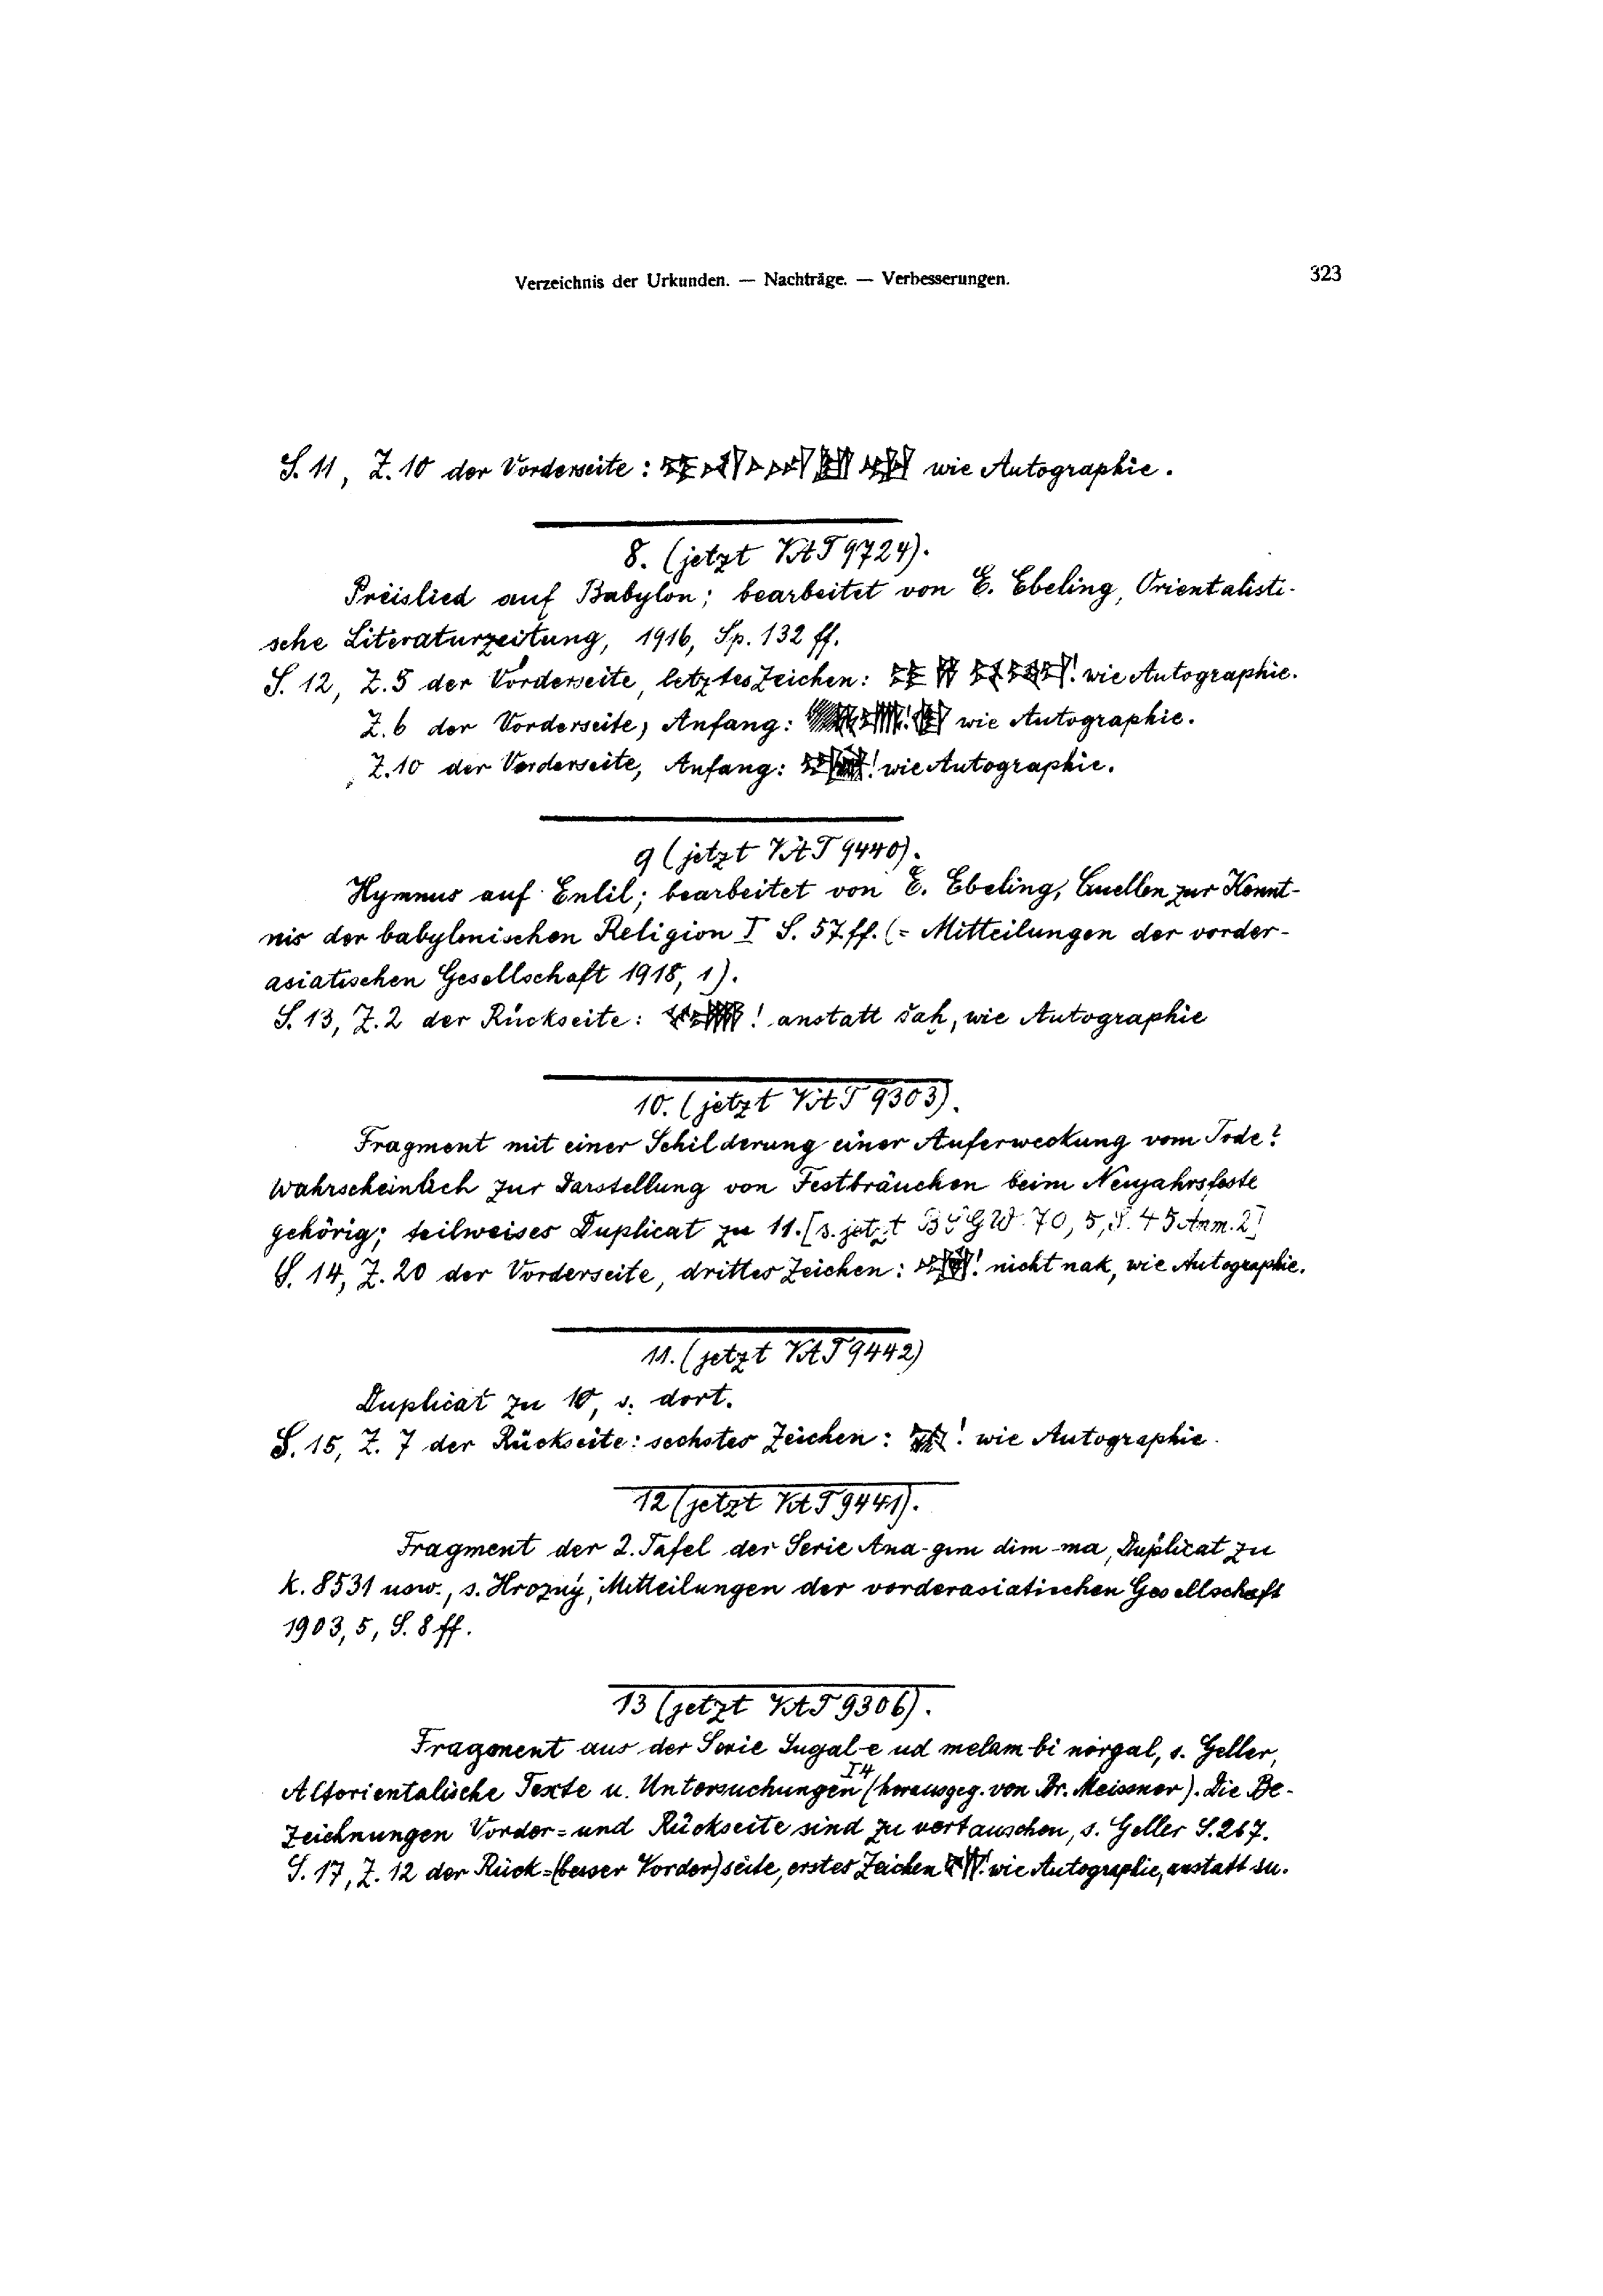 Verzeichnis der Urkunden. — Nachträge. — Verbesserungen. 323
S. 11, Z. 10 der Vorderseite: wie Autographie.
8. (jetzt VAT 9724).
Preislied auf Babylon; bearbeitet von E. Ebeling, Orientalisti-
sche Literaturzeitung, 1916, Sp. 132 ff.
S. 12, Z. 5 der Vorderseite, letztes Zeichen: ! wie Autographie.
Z. 6 der Vorderseite, Anfang: ! wie Autographie.
Z. 10 der Vorderseite, Anfang: ! wie Autographie.
9 (jetzt VAT 9440).
Hymnus auf Enlil; bearbeitet von E. Ebeling, Quellen zur Kennt-
nis der babylonischen Religion I S. 57 ff. (= Mitteilungen der vorder-
asiatischen Gesellschaft 1918, 1).
S. 13, Z. 2 der Rückseite: ! anstatt šaḫ, wie Autographie
10. (jetzt VAT 9303).
Fragment mit einer Schilderung einer Auferweckung vom Tode?
Wahrscheinlich zur Darstellung von Festbräuchen beim Neujahrsfeste
gehörig; teilweises Duplicat zu 11. [s. jetzt BSGW 70, 5, S. 45 Anm. 2]
S. 14, Z. 20 der Vorderseite, drittes Zeichen: ! nicht nak, wie Autographie.
11. (jetzt VAT 9442)
Duplicat zu 10, s. dort.
S. 15, Z. 7 der Rückseite: sechstes Zeichen: ! wie Autographie.
12 (jetzt VAT 9441).
Fragment der 2. Tafel der Serie Ana-gim dim-ma, Duplicat zu
K. 8531 usw., s. Hrozný, Mitteilungen der vorderasiatischen Gesellschaft
1903, 5, S. 8 ff.
13 (jetzt VAT 9306).
Fragment aus der Serie Lugal-e ud melam-bi nergal, s. Geller,
Altorientalische Texte u. Untersuchungen I 4 (herausgeg. von Br. Meissner). Die Be-
zeichnungen Vorder= und Rückseite sind zu vertauschen, s. Geller S. 267.
S. 17, Z. 12 der Rück=(besser Vorder)seite, erstes Zeichen ! wie Autographie, anstatt su.